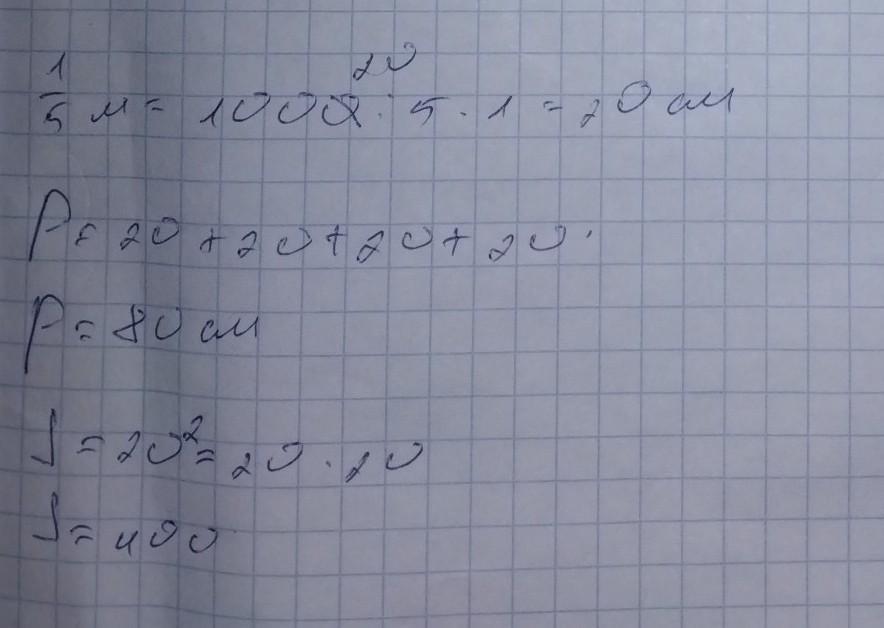 1/5 м = 100 : 5 · 1 = 20 см
20
P = 20 + 20 + 20 + 20
P = 80 см
S = 20² = 20 · 20
S = 400